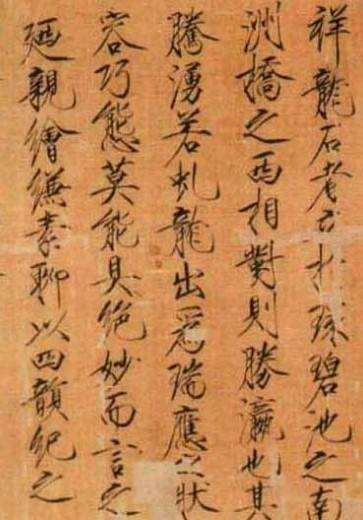 祥龍石者立於環碧池之南
洲橋之西相對則勝瀛也其
騰湧若虬龍出為瑞應之狀
容巧態莫能具絕妙而言之
廼親繪縑素聊以四韻紀之